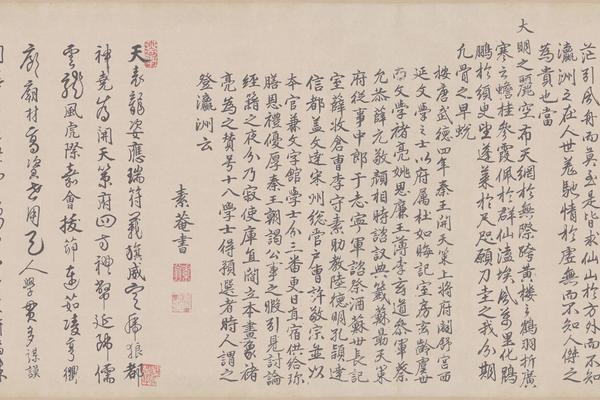 茫引風而莫至是皆求仙山於方外而不知
瀛洲之在人世羌馳情於虛無而不知人傑之
為貴也當
大明之麗空布天網於無際跨黃樓之鶴羽折廣
寒之蟾桂參霞佩於群仙溘埃風萬里化鵾
鵬於須臾望蓬萊於尺咫願刀圭之我分期
九骨之早蛻
按唐武德四年秦王開天策上將府闢館宮西
延文學之士以府属杜如晦記室房玄齡虞世
南文學褚亮姚思廉主簿李玄道參軍蔡
允恭薛元敬顏相時諮議典籤蘇勗天策
府從事中郎于志寧軍諮祭酒蘇世長記
室薛收倉曹李守素助教陸德明孔穎達
信都盖文達宋州總管戶曹許敬宗並以
本官兼文字館學士分三番更日直宿供給珍
膳恩禮優厚秦王朝謁公事之暇引見討論
經籍之夜分乃寂使庫直閻立本畫象褚
亮為之贊号十八學士得預選者時人謂之
登瀛洲云
素菴書
天表龍姿應瑞符義旗威定虎狼都
神堯為開天策府四方禮幣延碩儒
雲龍風虎際嘉會拔茆連茹凌亨衢
廊廟材為資世用天人學貫多謀謨